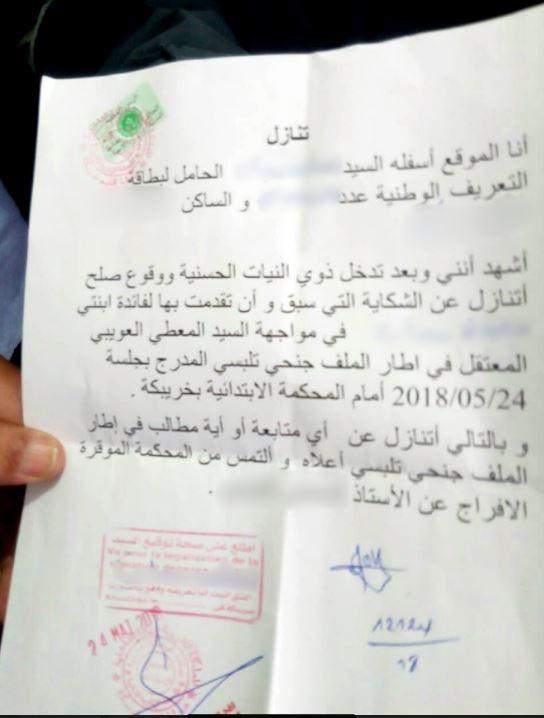 تنازل
أنا الموقع أسفله السيد الحامل لبطاقة
التعريف الوطنية عدد و الساكن
أشهد أنني وبعد تدخل ذوي النيات الحسنية ووقوع صلح
أتنازل عن الشكاية التي سبق و أن تقدمت بها لفائدة ابنتي
في مواجهة السيد المعطي العويبي
المعتقل في اطار الملف جنحي تلبسي المدرج بجلسة
2018/05/24 أمام المحكمة الابتدائية بخريبكة .
و بالتالي أتنازل عن أي متابعة أو أية مطالب في إطار
الملف جنحي تلبسي أعلاه و ألتمس من المحكمة الموقرة
الافراج عن الأستاذ .
اطلع على صحة توقيع السيد
Vu pour la légalisation de la
24 MAI
12124
18